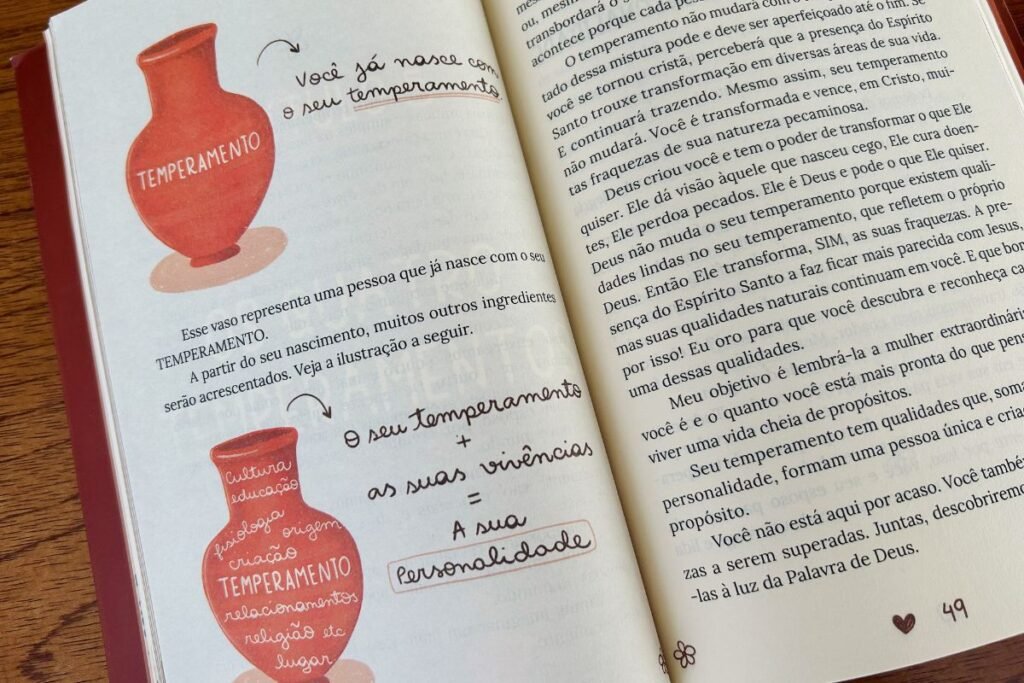 Você já nasce com
o seu temperamento.
TEMPERAMENTO
Esse vaso representa uma pessoa que já nasce com o seu
TEMPERAMENTO.
A partir do seu nascimento, muitos outros ingredientes
serão acrescentados. Veja a ilustração a seguir.
O seu temperamento
+
as suas vivências
=
A sua
Personalidade
Cultura
educação
fisiologia origem
criação
TEMPERAMENTO
relacionamentos
religião etc
lugar
ou, mesmo
transbordará o
acontece porque cada pes
O temperamento não mudará com o
tado dessa mistura pode e deve ser aperfeiçoado até o fim. Se
você se tornou cristã, perceberá que a presença do Espírito
Santo trouxe transformação em diversas áreas de sua vida.
E continuará trazendo. Mesmo assim, seu temperamento
não mudará. Você é transformada e vence, em Cristo, mui-
tas fraquezas de sua natureza pecaminosa.
Deus criou você e tem o poder de transformar o que Ele
quiser. Ele dá visão àquele que nasceu cego, Ele cura doen-
tes, Ele perdoa pecados. Ele é Deus e pode o que Ele quiser.
Deus não muda o seu temperamento porque existem quali-
dades lindas no seu temperamento, que refletem o próprio
Deus. Então Ele transforma, SIM, as suas fraquezas. A pre-
sença do Espírito Santo a faz ficar mais parecida com Jesus,
mas suas qualidades naturais continuam em você. E que bom
por isso! Eu oro para que você descubra e reconheça ca
uma dessas qualidades.
Meu objetivo é lembrá-la a mulher extraordinári
você é e o quanto você está mais pronta do que pen
viver uma vida cheia de propósitos.
Seu temperamento tem qualidades que, soma
personalidade, formam uma pessoa única e cria
propósito.
Você não está aqui por acaso. Você també
zas a serem superadas. Juntas, descobriremo
-las à luz da Palavra de Deus.
49